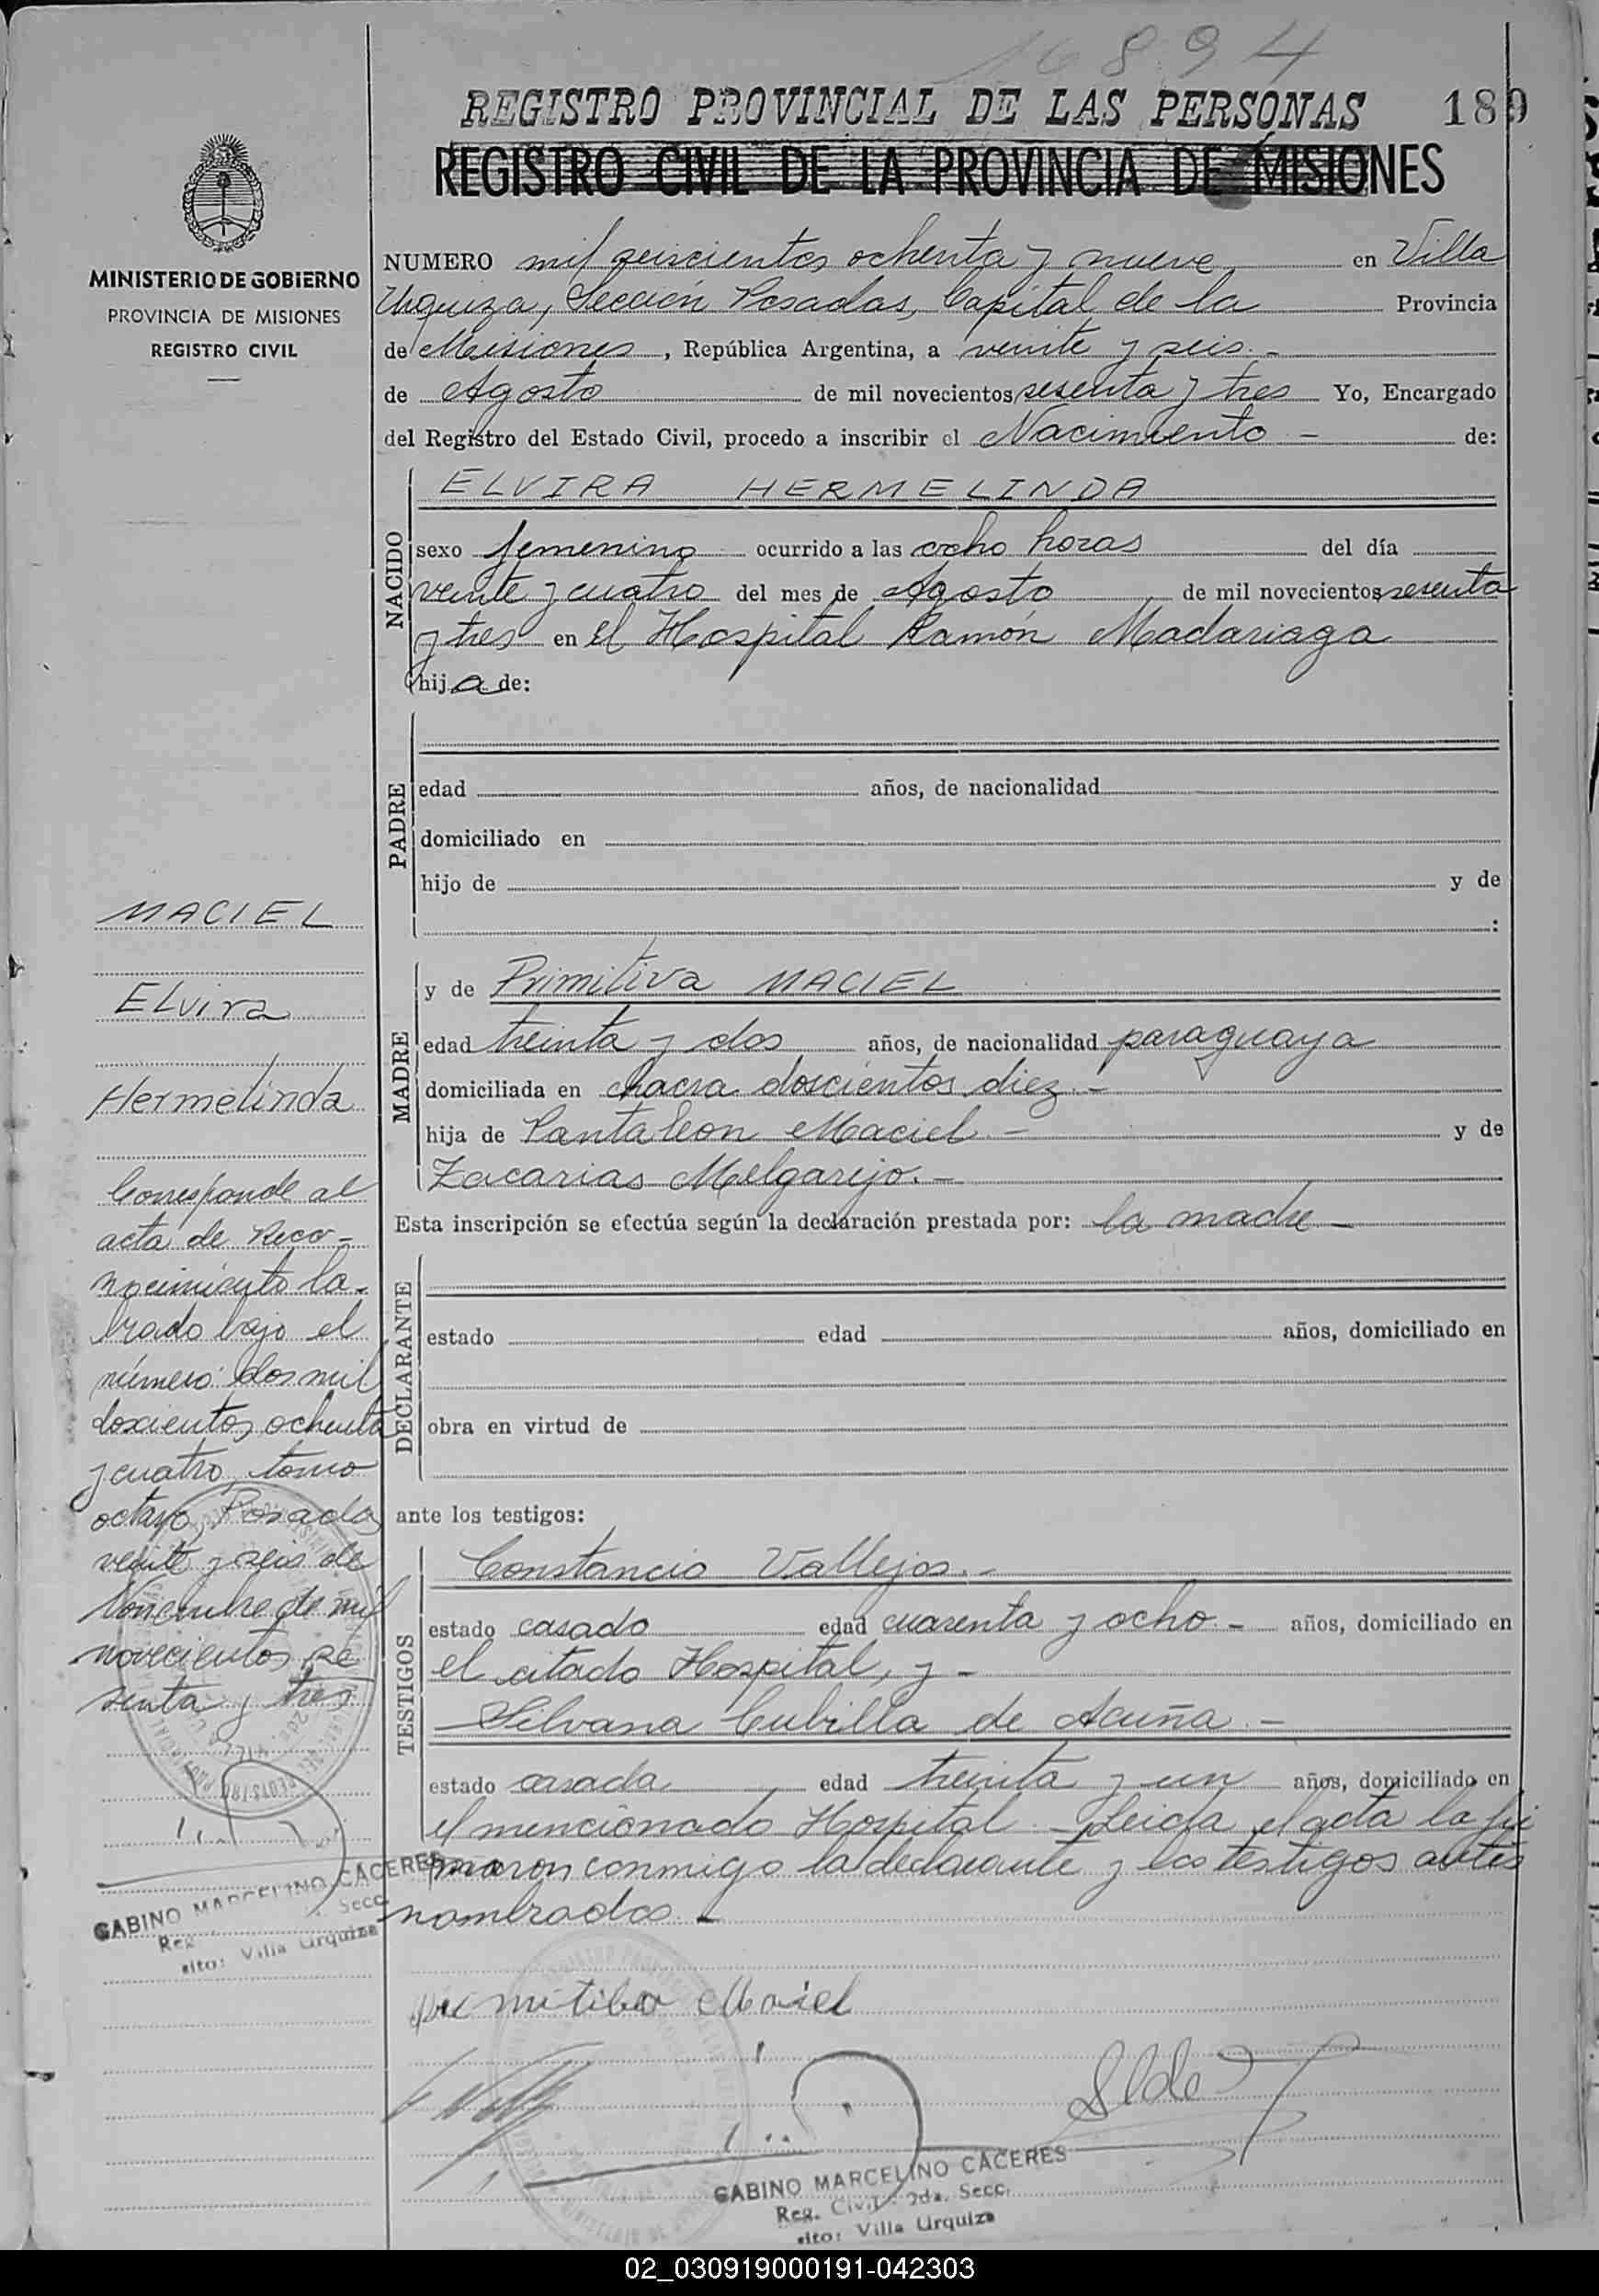 16894
REGISTRO PROVINCIAL DE LAS PERSONAS 189
REGISTRO CIVIL DE LA PROVINCIA DE MISIONES
MINISTERIO DE GOBIERNO
PROVINCIA DE MISIONES
REGISTRO CIVIL
NUMERO mil seiscientos ochenta y nueve en Villa
Urquiza, Sección Posadas, Capital de la Provincia
de Misiones, República Argentina, a veinte y seis.-
de Agosto de mil novecientos sesenta y tres Yo, Encargado
del Registro del Estado Civil, procedo a inscribir el Nacimiento - de:
NACIDO
ELVIRA HERMELINDA
sexo femenino ocurrido a las ocho horas del día
veinte y cuatro del mes de Agosto de mil novecientos sesenta
y tres en el Hospital Ramón Madariaga
hija de:
PADRE
edad años, de nacionalidad
domiciliado en
hijo de y de
:
MADRE
y de Primitiva MACIEL
edad treinta y dos años, de nacionalidad paraguaya
domiciliada en chacra doscientos diez.-
hija de Pantaleon Maciel - y de
Zacarias Melgarejo.-
Esta inscripción se efectúa según la declaración prestada por: la madre -
DECLARANTE
estado edad años, domiciliado en
obra en virtud de
ante los testigos:
TESTIGOS
Constancio Vallejos.-
estado casado edad cuarenta y ocho.- años, domiciliado en
el citado Hospital, y -
Silvana Cubilla de Acuña.-
estado casada edad treinta y un años, domiciliado en
el mencionado Hospital - Leida el acta la fir
maron conmigo la declarante y los testigos antes
nombrados.-
primitiba Maciel
GABINO MARCELINO CACERES
Reg. Civil 2da. Secc.
sito: Villa Urquiza
MACIEL
Elvira
Hermelinda
Corresponde al
acta de Reco-
nocimiento la-
brado bajo el
número dos mil
doscientos ochenta
y cuatro, tomo
octavo, Posadas
veinte y seis de
Noviembre de mil
novecientos se
senta y tres
GABINO MARCELINO CACERES
Reg. Secc.
sito: Villa Urquiza
02_030919000191-042303